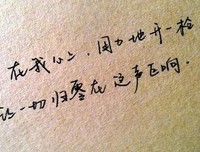 在我心上,用力地开一枪
让一切归零在这声巨响.